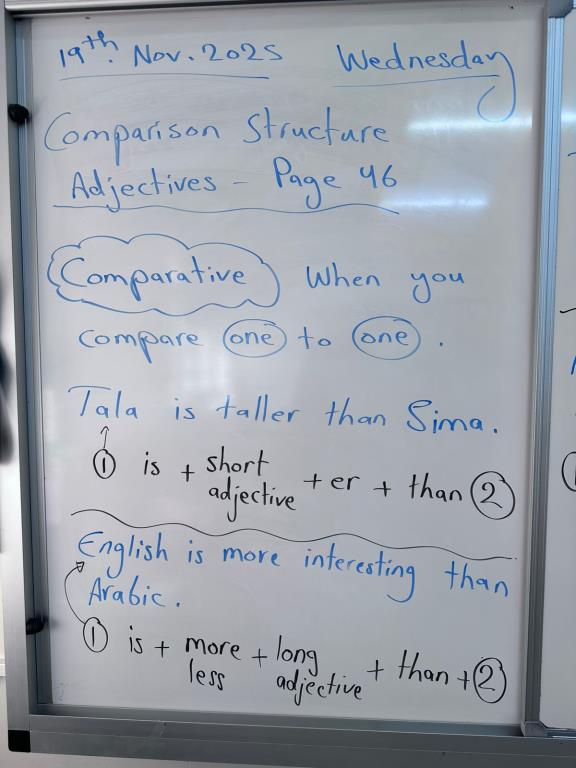 19th. Nov. 2025 Wednesday
Comparison Structure
Adjectives - Page 46
Comparative When you
compare one to one.
Tala is taller than Sima.
1 is + short adjective + er + than 2
English is more interesting than
Arabic.
1 is + more less + long adjective + than + 2